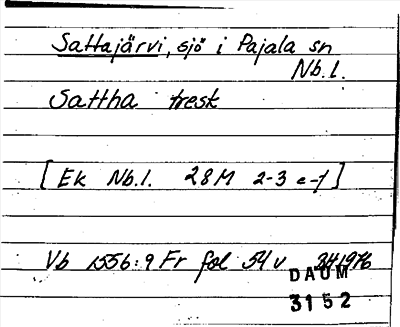 Sattajärvi, sjö i Pajala sn
Nb.l.
Sattha tresk
[Ek Nb.l. 28M 2-3 e-f]
Vb 1556:9 Fr fol 54v
DAUM
3152